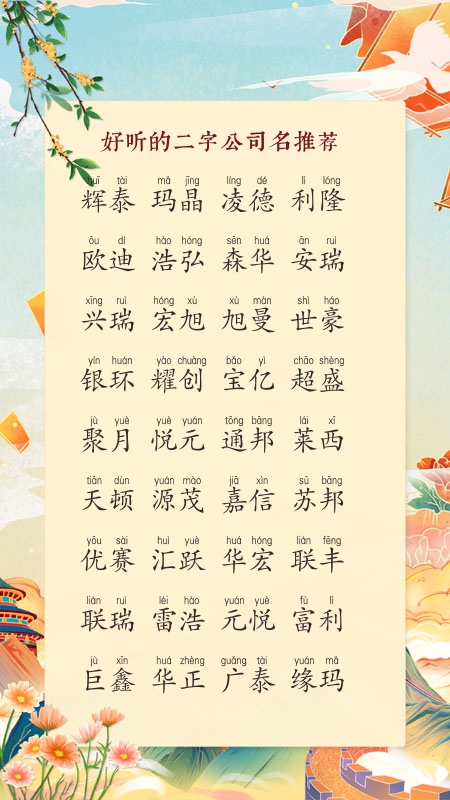 好听的二字公司名推荐
huī tài mǎ jīng líng dé lì lóng
辉泰 玛晶 凌德 利隆
ōu dí hào hóng sēn huá ān ruì
欧迪 浩弘 森华 安瑞
xīng ruì hóng xù xù màn shì háo
兴瑞 宏旭 旭曼 世豪
yín huán yào chuàng bǎo yì chāo shèng
银环 耀创 宝亿 超盛
jù yuè yuè yuán tōng bāng lái xī
聚月 悦元 通邦 莱西
tiān dùn yuán mào jiā xìn sū bāng
天顿 源茂 嘉信 苏邦
yōu sài huì yuè huá hóng lián fēng
优赛 汇跃 华宏 联丰
lián ruì léi hào yuán yuè fù lì
联瑞 雷浩 元悦 富利
jù xīn huá zhèng guǎng tài yuán mǎ
巨鑫 华正 广泰 缘玛